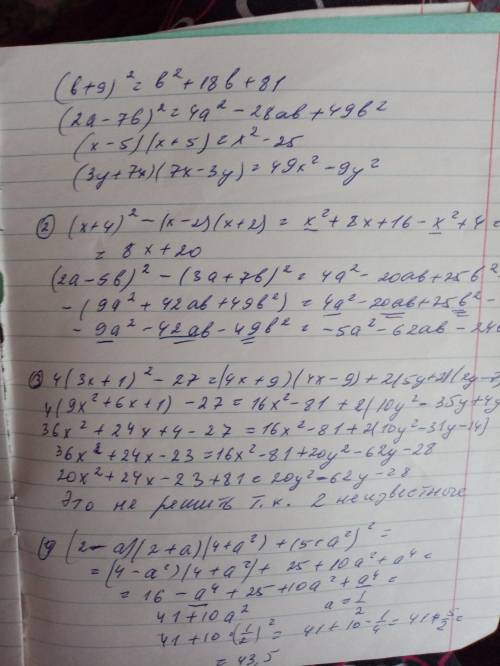 (b+9)² = b² + 18b + 81
(2a-7b)² = 4a² - 28ab + 49b²
(x-5)(x+5) = x² - 25
(3y+7x)(7x-3y) = 49x² - 9y²
② (x+4)² - (x-2)(x+2) = x² + 8x + 16 - x² + 4 =
= 8x + 20
(2a-5b)² - (3a+7b)² = 4a² - 20ab + 25b²
- (9a² + 42ab + 49b²) = 4a² - 20ab + 25b² -
- 9a² - 42ab - 49b² = -5a² - 62ab - 24
③ 4(3x+1)² - 27 = (4x+9)(4x-9) + 2(5y+2)(2y-7
4(9x² + 6x + 1) - 27 = 16x² - 81 + 2(10y² - 35y + 4y
36x² + 24x + 4 - 27 = 16x² - 81 + 2(10y² - 31y - 14)
36x² + 24x - 23 = 16x² - 81 + 20y² - 62y - 28
20x² + 24x - 23 + 81 = 20y² - 62y - 28
Это не решить т.к. 2 неизвестные
(2-a)(2+a)(4+a²) + (5+a²)² =
= (4-a²)(4+a²) + 25 + 10a² + a⁴ =
= 16 - a⁴ + 25 + 10a² + a⁴ =
41 + 10a² a = 1/2
41 + 10·(1/2)² = 41 + 10·1/4 = 41 + 5/2 =
= 43,5